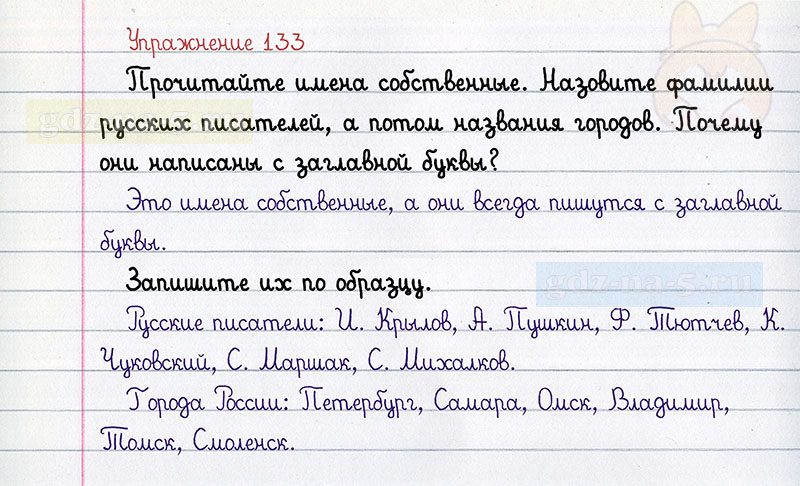 Упражнение 133
Прочитайте имена собственные. Назовите фамилии
русских писателей, а потом названия городов. Почему
они написаны с заглавной буквы?
Это имена собственные, а они всегда пишутся с заглавной
буквы.
Запишите их по образцу.
gdz-na-5.ru
Русские писатели: И. Крылов, А. Пушкин, Ф. Тютчев, К.
Чуковский, С. Маршак, С. Михалков.
Города России: Петербург, Самара, Омск, Владимир,
Томск, Смоленск.